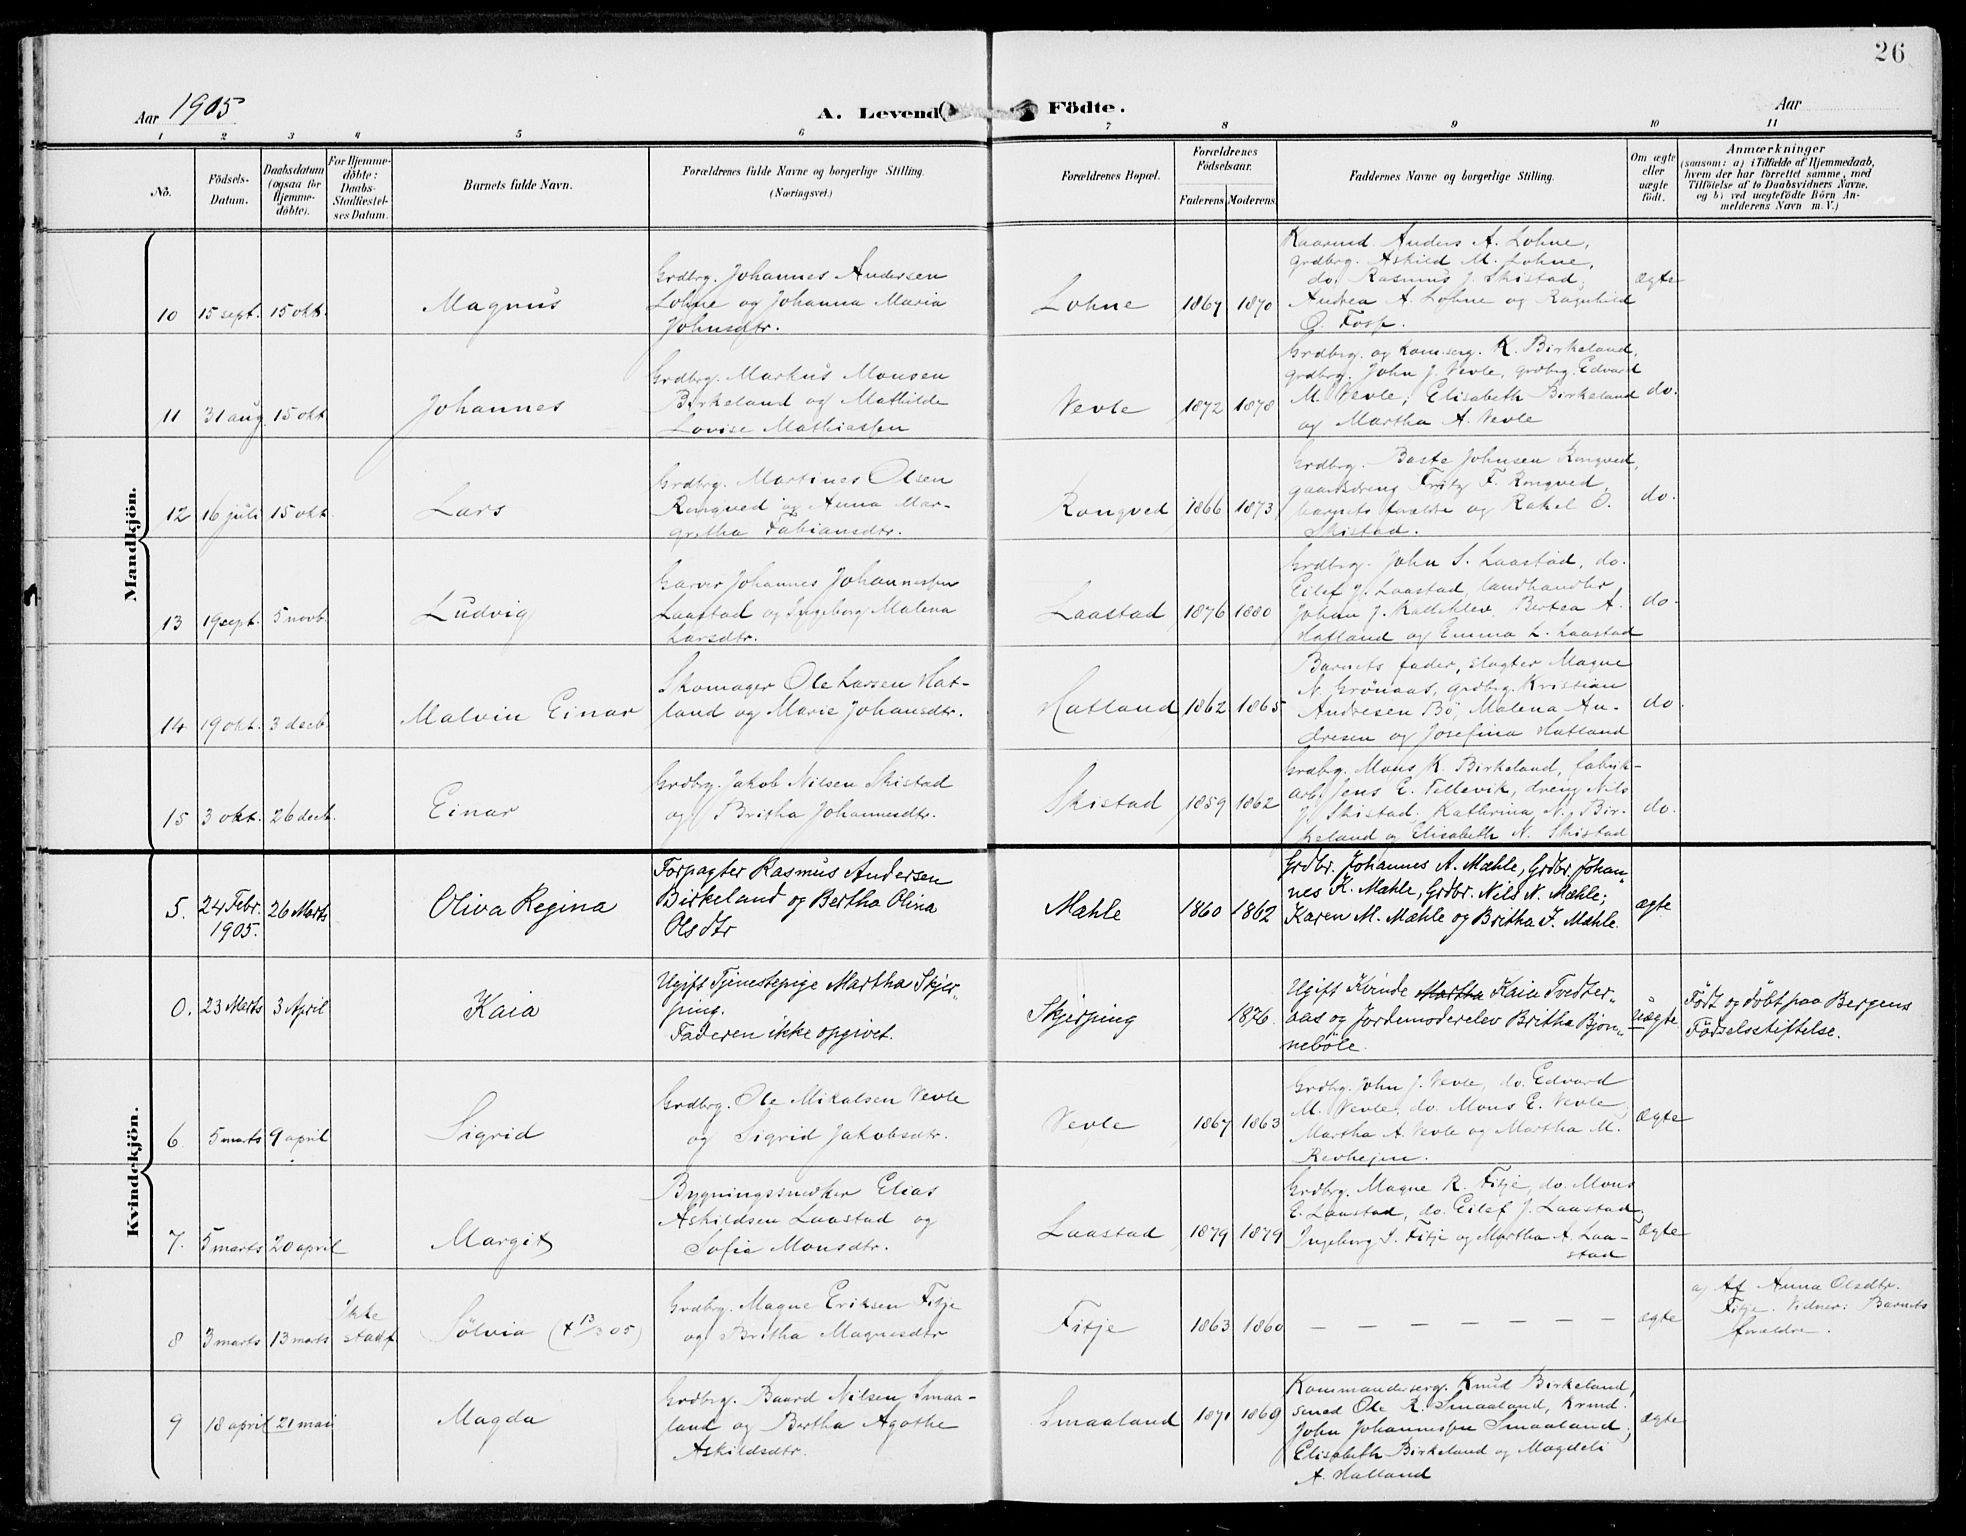 26
Aar 1905
A. Levende Födte.
Aar
1 2 3 4 5 6 7 8 9 10 11
No.
Födsels-
Datum.
Daabsdatum
(ogsaa for
Hjemme-
döbte).
For Hjemme-
döbte:
Daabs-
Stadfæstel-
ses Datum.
Barnets fulde Navn.
Forældrenes fulde Navne og borgerlige Stilling.
(Næringsvei.)
Forældrenes Bopæl.
Forældrenes
Födselsaar.
Faderens Moderens.
Faddernes Navne og borgerlige Stilling.
Om ægte
eller
uægte
födt.
Anmærkninger
(saasom: a) i Tilfælde af Hjemmedaab,
hvem der har forrettet samme, med
Tilföielse af to Daabsvidners Navne.
og b) ved uægtefödte Börn An-
melderens Navn m. V.)
Mandkjön.
10 15 sept. 15 okt.
Magnus
Grdbrg. Johannes Andersen
Lohne og Johanna Maria
Johnsdtr.
Lohne
1867 1870
Kaarmd. Anders A. Lohne,
grdbrg. Askild M. Lohne,
do. Rasmus J. Skistad,
Andrea A. Lohne og Ragnhild
O. Fosse.
ægte
11 31 aug 15 okt
Johannes
Grdbrg. Markus Monsen
Birkeland og Mathilde
Lovise Mathiassen
Vevle
1872 1878
Grdbrg. og K. Birkeland,
grdbrg. John J. Vevle, grdbrg. Edvard
M. Vevle, Elisabeth Birkeland
og Martha A. Vevle
do.
12 16 juli 15 okt.
Lars
Grdbrg. Martines Olsen
Rongved og Anna Mar-
gretha Fabiansdtr.
Rongved
1866 1873
Grdbrg. Baste Johnsen Rongved,
gaardsdreng Fritz F. Rongved,
barnets forældre og Rakel O.
Skistad.
do.
13 19 sept. 5 novb.
Ludvig
Garver Johannes Johannessen
Laastad og Ingeborg Malena
Larsdtr.
Laastad
1876 1880
Grdbrg. John S. Laastad, do.
Eilef J. Laastad, landhandler
Johan J. Kalleklev. Bertea A.
Hatland og Emma L. Laastad
do.
14 19 okt. 3 decb.
Malvin Einar
Skomager Ole Larsen Hat-
land og Marie Johansdtr.
Hatland
1862 1865
Barnets fader, slagter Magne
N. Grönaas, grdbrg. Kristian
Andresen Bö, Malena An-
dresen og Josefina Hatland
do.
15 3 okt. 26 decb.
Einar
Grdbrg. Jakob Nilsen Skistad
og Britha Johannesdtr.
Skistad
1859 1862
Grdbrg. Mons K. Birkeland, fabrik-
arb. Jens E. Tellevik, dreng Nils
J. Skistad. Kathrina N. Bir-
keland og Elisabeth N. Skistad
do.
Kvindekjön.
5. 24 Febr. 26 Marts
1905.
Oliva Regina
Forpagter Rasmus Andersen
Birkeland og Bertha Olina
Olsdtr
Mæhle
1860 1862
Grdbr. Johannes A. Mæhle, Grdbr. Johan-
nes K. Mæhle, Grdbr. Nils N. Mæhle;
Karen M. Mæhle og Britha J. Mæhle.
ægte
0. 23 Marts 3 April
Kaia
Ugift Tjenestepige Martha Skjer-
ping.
Faderen ikke opgivet.
Skjerping
1876.
Ugift Kvinde Martha Kaia Tvedter-
aas og Jordemoderelev Britha Bjön-
nebôle.
uægte
Födt og döbt paa Bergens
Födselsstiftelse.
6 5 marts 9 april
Sigrid
Grdbrg. Ole Mikalsen Vevle
og Sigrid Jakobsdtr.
Vevle
1867 1863
Grdbrg. John J. Vevle, do. Edvard
M. Vevle, do. Mons E. Vevle,
Martha A. Vevle og Martha M.
Revheim.
ægte
7. 5 marts 20 april
Margit
Bygningssnedker Elias
Askildsen Laastad og
Sofie Monsdtr.
Laastad
1879 1879
Grdbrg. Magne R. Fitje, do. Mons
E. Laastad, do. Eilef J. Laastad,
Ingeborg S. Fitje og Martha A. Laa-
stad
ægte
8 3 marts 13 marts
Ikke
stadf
Sölvia (+ 13/3 05)
Grdbrg. Magne Eriksen Fitje
og Britha Magnesdtr
Fitje
1863 1860
— — — — — — —
ægte
a) Af Anna Olsdtr.
Fitje. Vidner: Barnets
forældre.
9 18 april 21 mai
Magda
Grdbrg. Baard Nilsen Smaa-
land og Bertha Agathe
Askildsdtr.
Smaaland
1871 1869
Kommandersrg. Knud Birkeland,
smed Ole R. Smaaland, krmd.
John Johannessen Smaaland,
Elisabeth Birkeland og Magdeli
A. Hatland
ægte